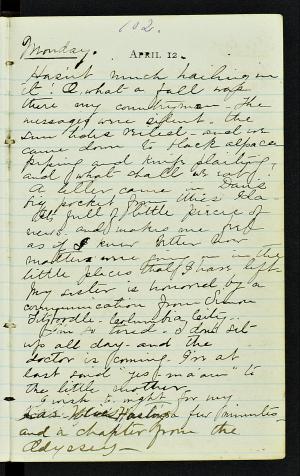 102.
Monday. APRIL 12.
Hasn't much hailing in
it! O, what a fall was
there my countrymen - The
messages were silent. The
sun and we
came down to black alpaca
piping and knife plaiting
and "what shall we eat?"
A letter came in
big pocket from
full of little pieces of
news and makes me feel
as if I knew better how
matters were in the
little places that I have left
My sister is honored by a
communication from Simon
Columbia City.
I'm so tired. I do set
up all day - and the
doctor is coming. I'm at
last said "yes ma'am" to
the little mother.
I wish to night for my
a few minutes
and a chapter from the
Odyssey -